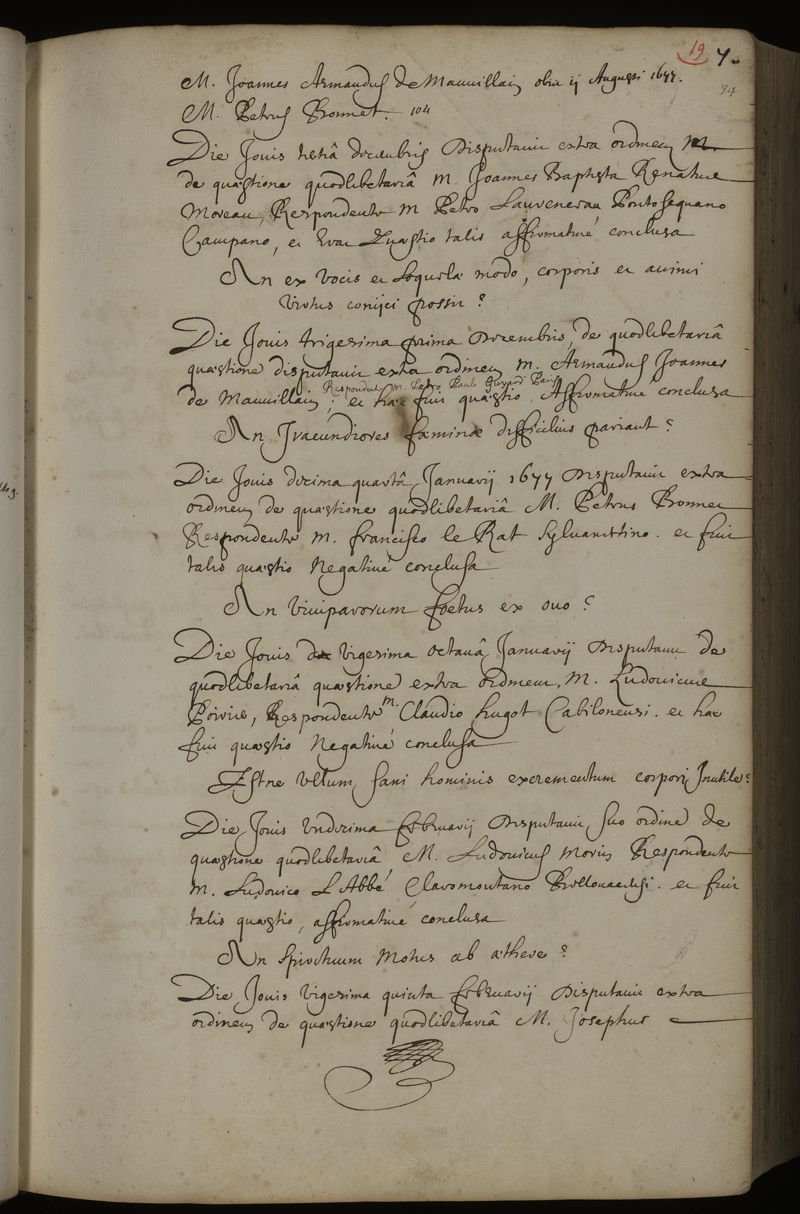 19 7.
94
M. Joannes Armandus de Mauuillain obiit ij Augusti 1677.
M. Petrus Bonnet. 104
Die Jouis tertiâ decembris Disputauit extra ordinem M.
de quæstione quodlibetariâ M. Joannes Baptista Renatus
Moreau, Respondente M Petro Laurenceau Pontosequano
Campano, et erat Quæstio talis affirmatiué conclusa
An ex vocis et loquelæ modo, corporis et animi
virtus conijci possit?
Die Jouis trigesima prima Decembris, de quodlibetariâ
quæstione disputauit extra ordinem M. Armandus Joannes
Respondente M. Petro Paulo Guyard Paris
de Mauuillain; et hæc fuit quæstio, Affirmatiué conclusa
An Iracundiores fæminæ difficilius pariant?
Die Jouis decima quartâ Januarij 1677 Disputauit extra
ordinem de quæstione quodlibetariâ M. Petrus Bonnet
Respondente M. francisco le Rat Syluanectino. et fuit
talis quæstio Negatiué conclusa
An viuiparorum foetus ex ouo?
Die Jouis de vigesima octauâ Januarij Disputauit de
quodlibetariâ quæstione extra ordinem, M. Ludouicus
Poirier, Respondente M. Claudio hugot Cabilonensi. et hæc
fuit quæstio Negatiué conclusa
Estne vllum sani hominis excrementum corpori Inutile?
Die Jouis vndecima februarij Disputauit suo ordine de
quæstione quodlibetariâ M. Ludouicus Morin Respondente
M. Ludouico L'Abbé Claromontano Bellouacensi. et fuit
talis quæstio, affirmatiué conclusa
An Spirituum Motus ab æthere?
Die Jouis vigesima quinta februarij Disputauit extra
ordinem de quæstione quodlibetariâ M. Josephus